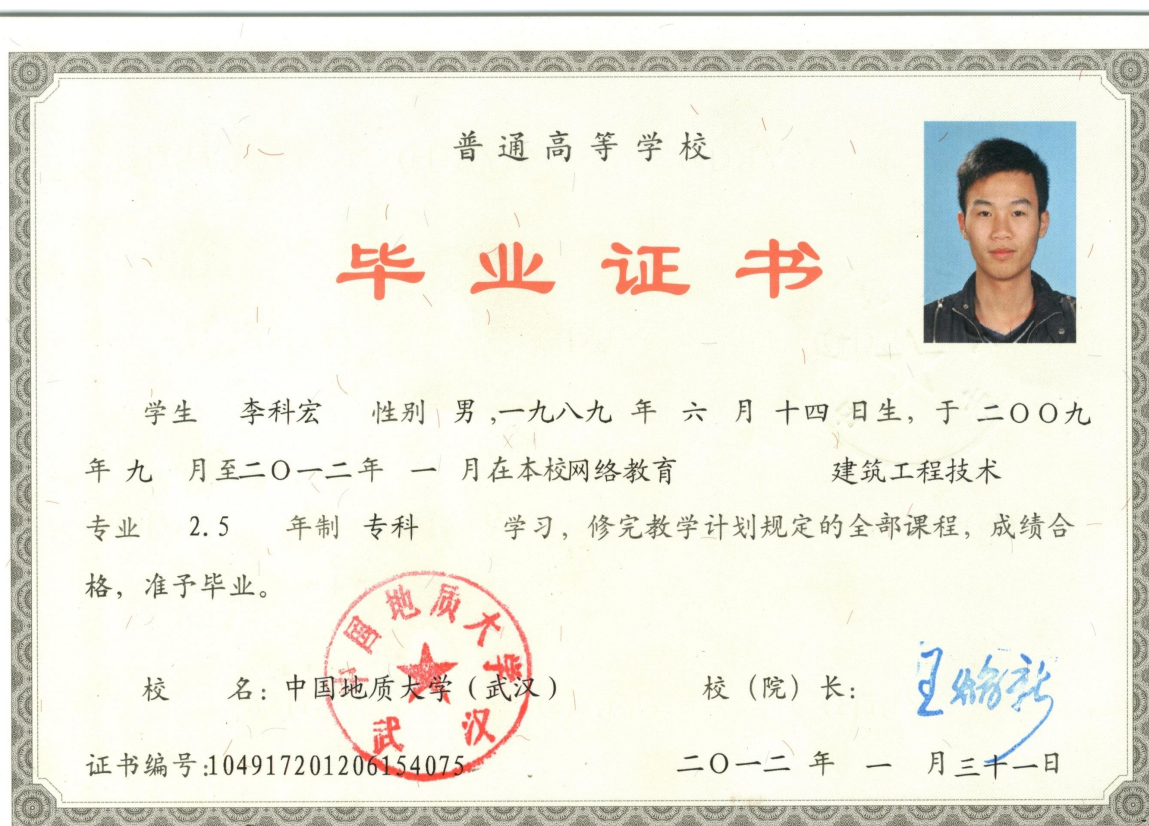 普通高等学校
毕业证书
学生 李科宏 性别 男,一九八九 年 六 月 十四 日生，于 二〇〇九
年 九 月至二〇一二年 一 月在本校网络教育 建筑工程技术
专业 2.5 年制 专科 学习，修完教学计划规定的全部课程，成绩合
格，准予毕业。
中国地质大学
武汉
校 名：中国地质大学（武汉） 校（院）长：
证书编号:104917201206154075 二〇一二 年 一 月三十一日